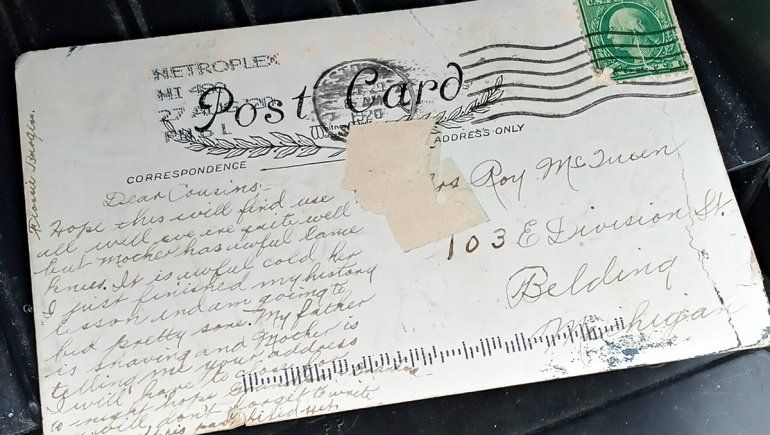 METROPLEX
MI 480
27
PM 5 L
Post Card
1920
CORRESPONDENCE
ADDRESS ONLY
Flossie Burgess
Dear Cousins,
Hope this will find use
all well we are quite well
but Mother has awful lame
knees. It is awful cold her
I just finished my history
lesson and am going to
bed pretty soon. My father
is shaving and Mother is
telling me your address
I will have to close for
to night hope
will don't forget to write
Roy McQueen
103 E Division St.
Belding
Michigan